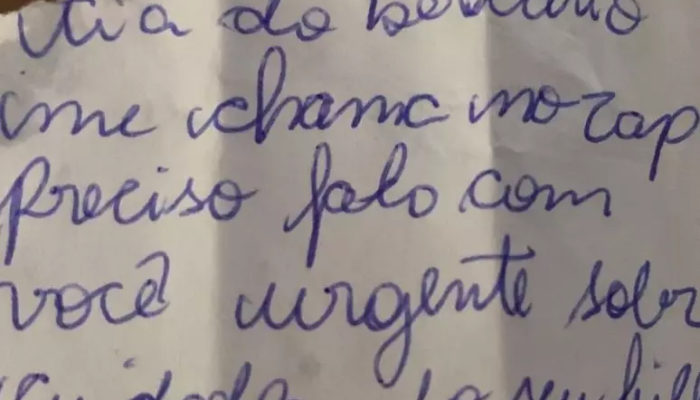 tia do
me chama no zap
preciso falo com
você urgente sobr